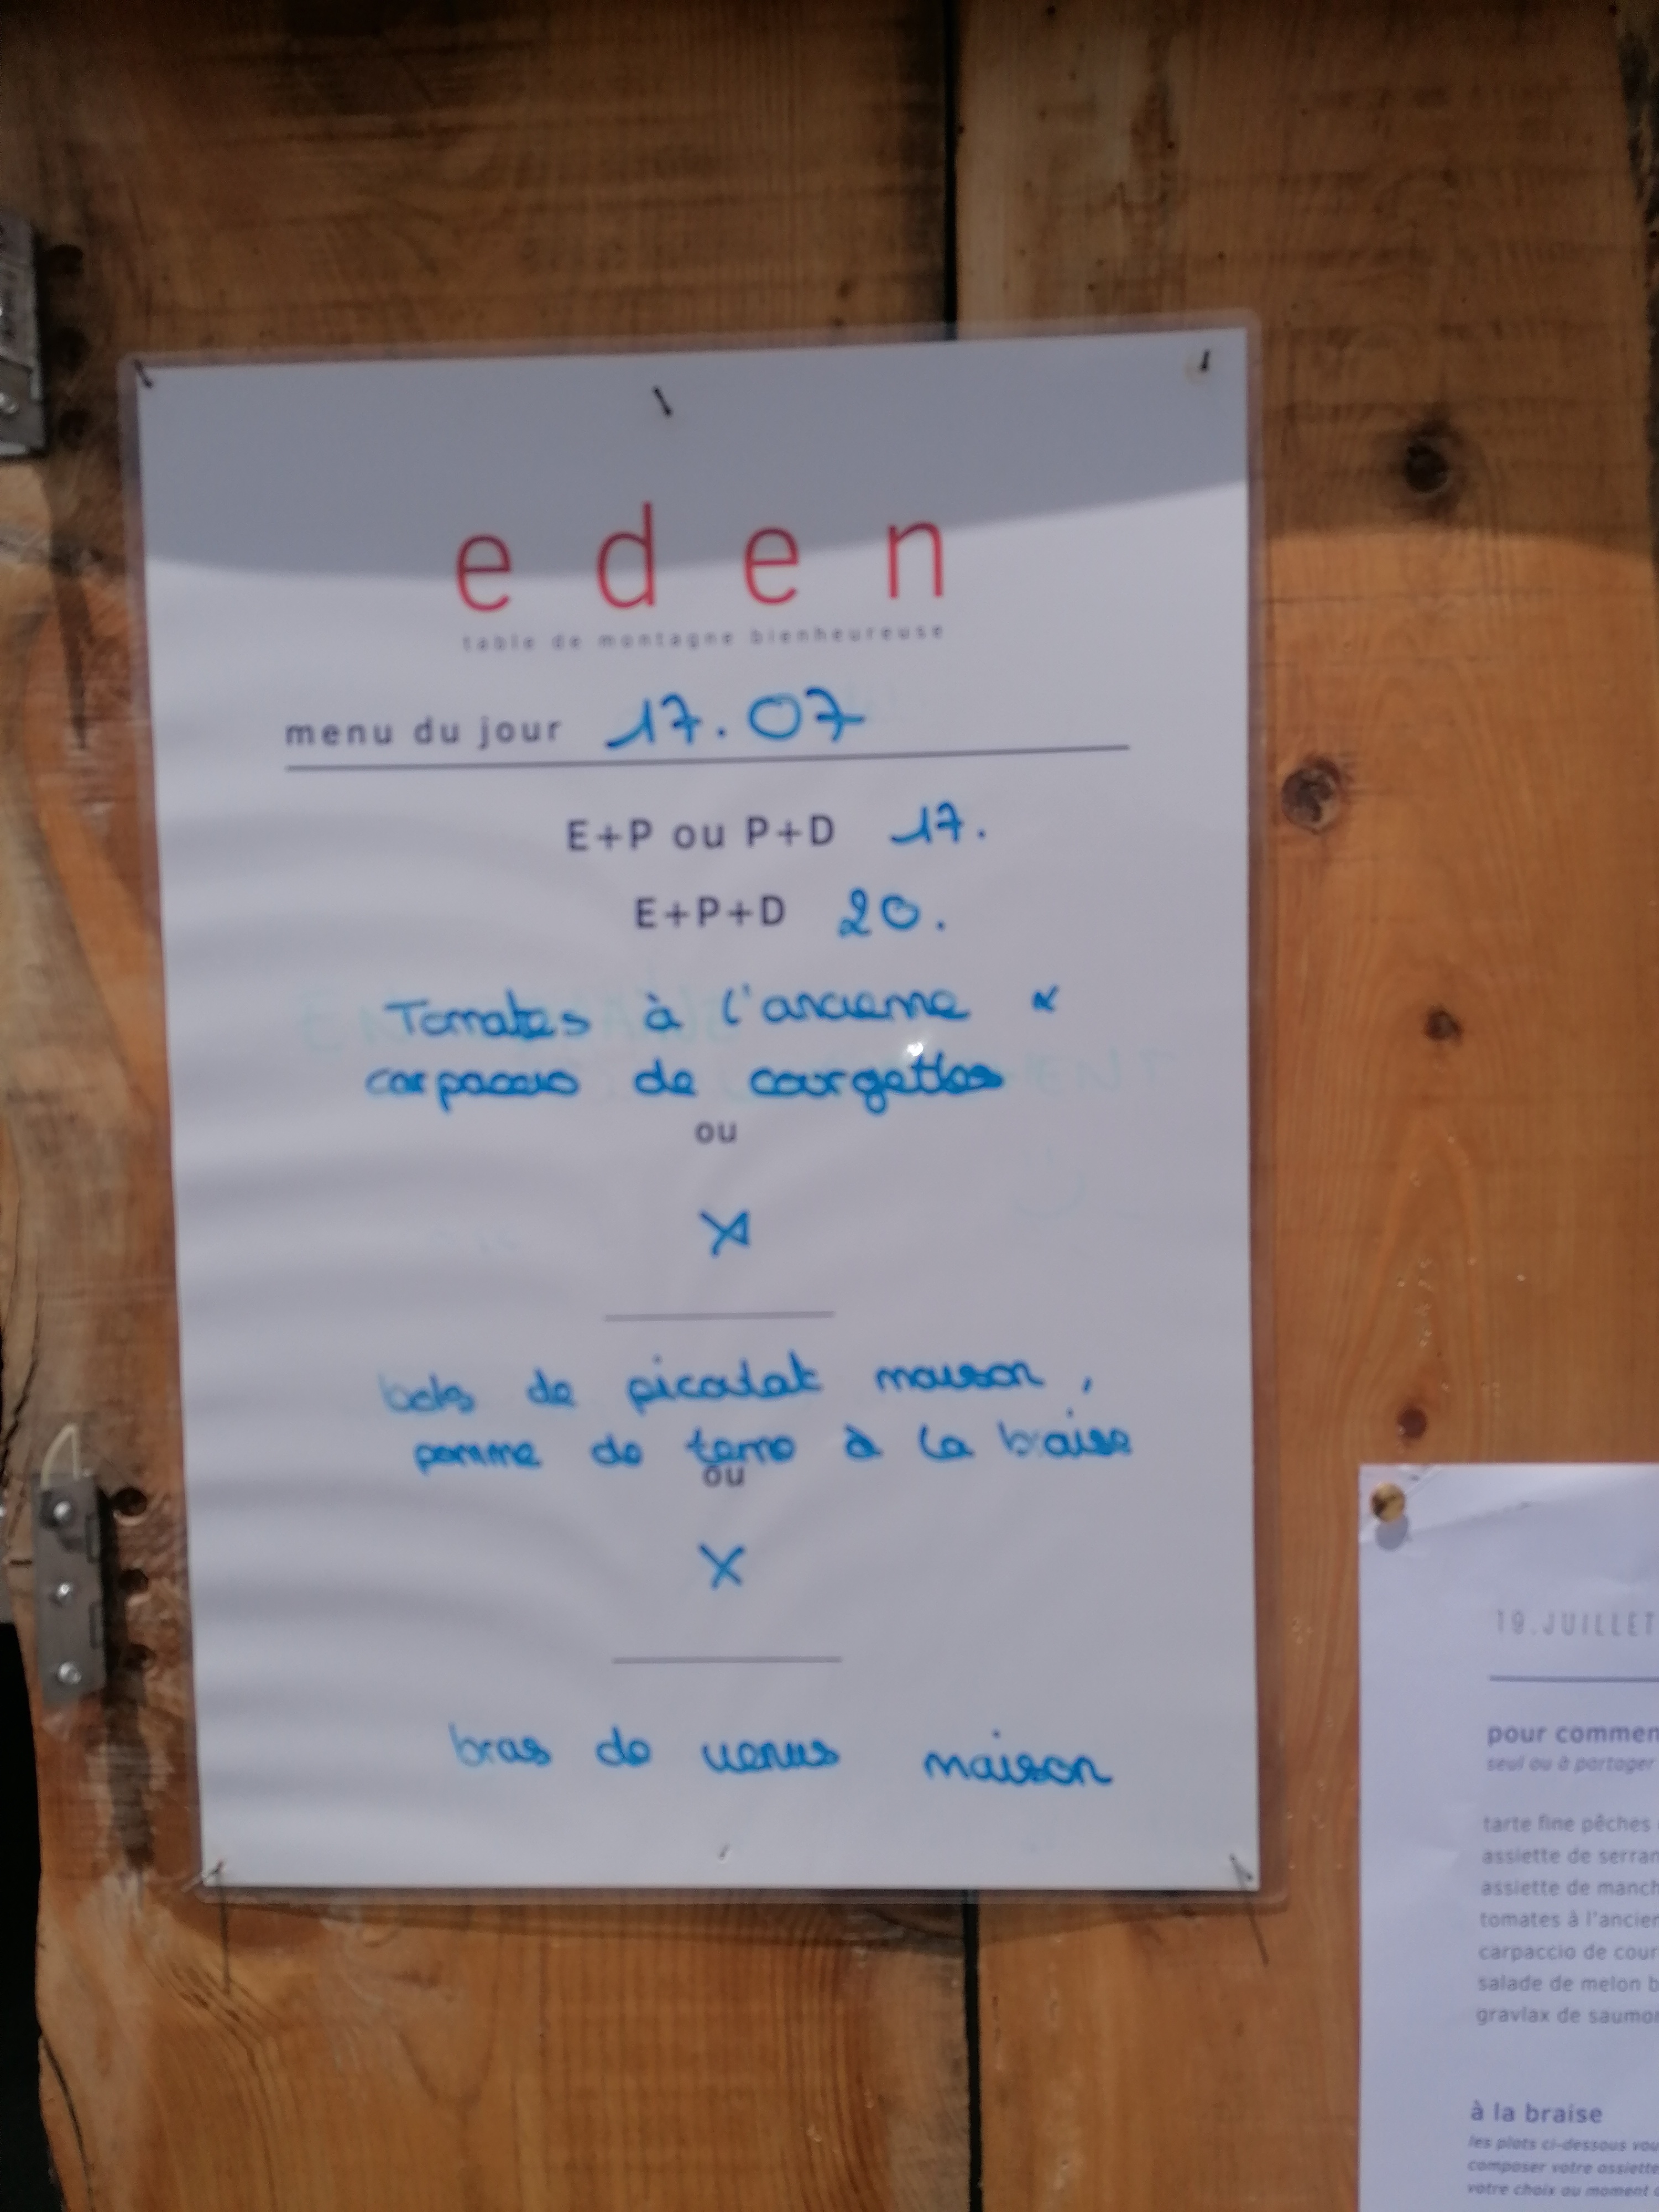 eden
table de montagne bienheureuse
menu du jour 17.07
E+P ou P+D 17.
E+P+D 20.
Tomates à l'ancienne &
carpaccio de courgettes
ou
X
bols de picolat maison,
pomme de terre à la braise
ou
X
bras de venus maison
19.JUILLET
pour commen
seul ou à partager
tarte fine pêches
assiette de serran
assiette de manch
tomates à l'ancien
carpaccio de cour
salade de melon b
gravlax de saumon
à la braise
les plats ci-dessous vou
composer votre assiette
votre choix au moment